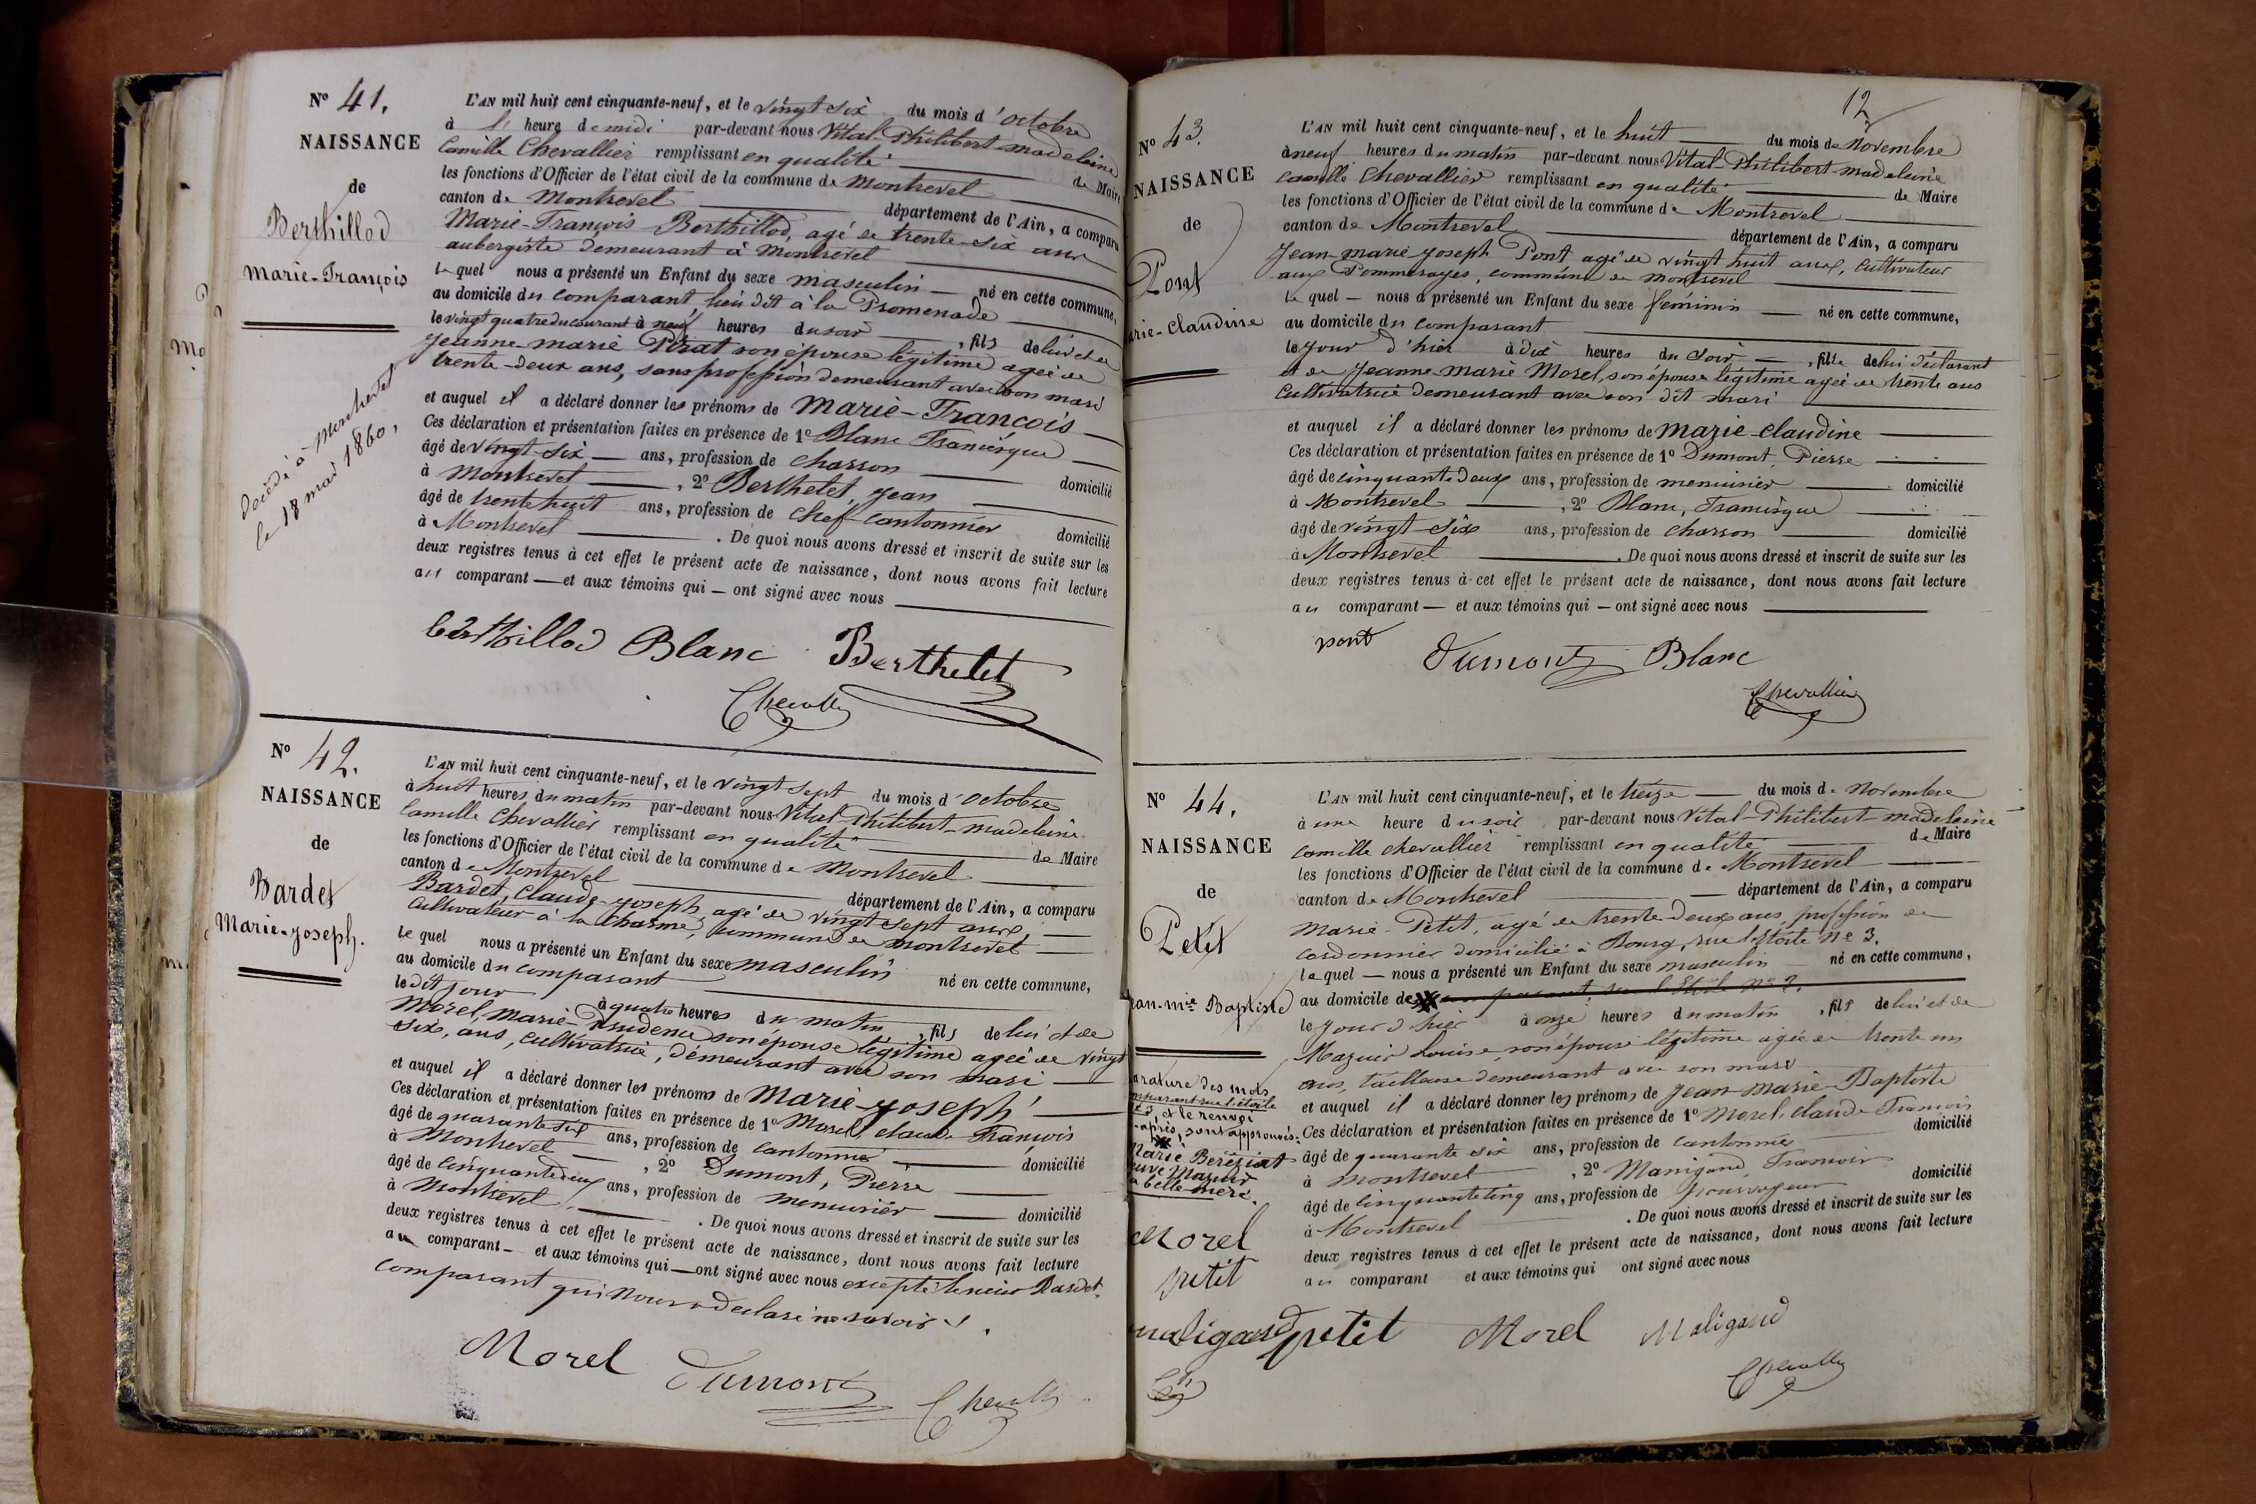 N° 41.
NAISSANCE
de
Berthillod
Marie-François
Décédé à Montrevel
le 18 mai 1860,
L'AN mil huit cent cinquante-neuf, et le vingt six du mois d'octobre
à heure de midi par-devant nous Vital Philibert-madeleine
Camille Chevallier remplissant en qualité de Maire
les fonctions d'Officier de l'état civil de la commune de Montrevel
canton de Montrevel département de l'Ain, a comparu
Marie-François Berthillod, agé de trente-six ans
aubergiste demeurant à Montrevel
lequel nous a présenté un Enfant du sexe masculin né en cette commune,
au domicile du comparant lieu dit à la Promenade
le vingt quatre du courant à neuf heures du soir, fils de lui et de
Jeanne-marie Pirat son épouse légitime agée de
trente-deux ans, sans profession demeurant avec son mari
et auquel il a déclaré donner les prénoms de Marie-François
Ces déclaration et présentation faites en présence de 1° Blanc Francisque
âgé de vingt-six ans, profession de charron domicilié
à Montrevel, 2° Berthelet, Jean
âgé de trente huit ans, profession de chef cantonnier domicilié
à Montrevel. De quoi nous avons dressé et inscrit de suite sur les
deux registres tenus à cet effet le présent acte de naissance, dont nous avons fait lecture
au comparant et aux témoins qui ont signé avec nous
berthillod Blanc Berthelet
Chevallier
N° 42.
NAISSANCE
de
Bardet
Marie-Joseph.
L'AN mil huit cent cinquante-neuf, et le vingt sept du mois d'octobre
à huit heures du matin par-devant nous Vital-Philibert-madeleine
Camille Chevallier remplissant en qualité de Maire
les fonctions d'Officier de l'état civil de la commune de Montrevel
canton de Montrevel département de l'Ain, a comparu
Bardet, Claude-Joseph, agé de vingt sept ans,
cultivateur à la Charme, commune de Montrevel
lequel nous a présenté un Enfant du sexe masculin né en cette commune,
au domicile du comparant
le dit jour à quatre heures du matin, fils de lui et de
Morel, marie-Prudence son épouse légitime agée de vingt
six, ans, cultivatrice, demeurant avec son mari
et auquel il a déclaré donner les prénoms de Marie-Joseph
Ces déclaration et présentation faites en présence de 1° Morel, claude François
âgé de quarante six ans, profession de cantonnier domicilié
à Montrevel, 2° Dumont, Pierre
âgé de cinquante deux ans, profession de menuisier domicilié
à Montrevel. De quoi nous avons dressé et inscrit de suite sur les
deux registres tenus à cet effet le présent acte de naissance, dont nous avons fait lecture
au comparant et aux témoins qui ont signé avec nous excepté le sieur Bardet
comparant qui nous a déclaré ne savoir.
Morel Dumont Chevallier
12
N° 43.
NAISSANCE
de
Pont
arie-Claudine
L'AN mil huit cent cinquante-neuf, et le huit du mois de Novembre
à neuf heures du matin par-devant nous Vital-Philibert-madeleine
Camille Chevallier remplissant en qualité de Maire
les fonctions d'Officier de l'état civil de la commune de Montrevel
canton de Montrevel département de l'Ain, a comparu
Jean-marie-Joseph Pont agé de vingt huit ans, cultivateur
aux Pommerayes, commune de Montrevel
lequel nous a présenté un Enfant du sexe féminin né en cette commune,
au domicile du comparant
le jour d'hier à dix heures du soir, fille de lui déclarant
et de Jeanne-marie Morel, son épouse légitime agée de trente ans
cultivatrice demeurant avec son dit mari
et auquel il a déclaré donner les prénoms de Marie-Claudine
Ces déclaration et présentation faites en présence de 1° Dumont, Pierre
âgé de cinquante deux ans, profession de menuisier domicilié
à Montrevel, 2° Blanc, Francisque
âgé de vingt six ans, profession de charron domicilié
à Montrevel. De quoi nous avons dressé et inscrit de suite sur les
deux registres tenus à cet effet le présent acte de naissance, dont nous avons fait lecture
au comparant et aux témoins qui ont signé avec nous
pont Dumont Blanc
Chevallier
N° 44.
NAISSANCE
de
Petit
ean-mie Baptiste
L'AN mil huit cent cinquante-neuf, et le treize du mois de Novembre
à une heure du soir par-devant nous Vital-Philibert-madeleine
Camille Chevallier remplissant en qualité de Maire
les fonctions d'Officier de l'état civil de la commune de Montrevel
canton de Montrevel département de l'Ain, a comparu
Marie-Petit, agé de trente-deux ans, profession de
cordonnier domicilié à Bourg, rue l'étoile N° 3.
lequel nous a présenté un Enfant du sexe masculin né en cette commune,
au domicile de comparant, rue l'Etoile N° 3.
le jour d'hier à onze heures du matin, fils de lui et de
Mazuir Louise, son épouse légitime agée de trente un
ans, tailleuse demeurant avec son mari
et auquel il a déclaré donner les prénoms de Jean-Marie-Baptiste
Ces déclaration et présentation faites en présence de 1° Morel, claude-François
âgé de quarante six ans, profession de cantonnier domicilié
à Montrevel, 2° Manigand, François
âgé de cinquante cinq ans, profession de domicilié
à Montrevel. De quoi nous avons dressé et inscrit de suite sur les
deux registres tenus à cet effet le présent acte de naissance, dont nous avons fait lecture
au comparant et aux témoins qui ont signé avec nous
rature des mots
mparant rue l'étoile
3, et le renvoi
-après, sont approuvés:
Marie Beréziat
euve Mazuir
a belle-mère.
Morel
petit
maligand petit Morel Maligand
Ch Chevallier